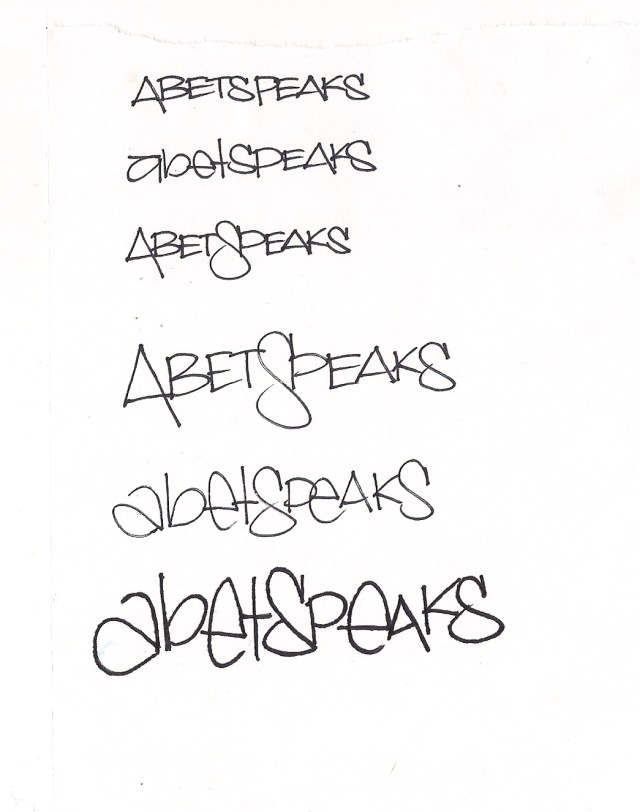 ABETSPEAKS
abetSPEAKS
ABETSPEAKS
ABETSPEAKS
abetSpeAKS
abetSpeAKS